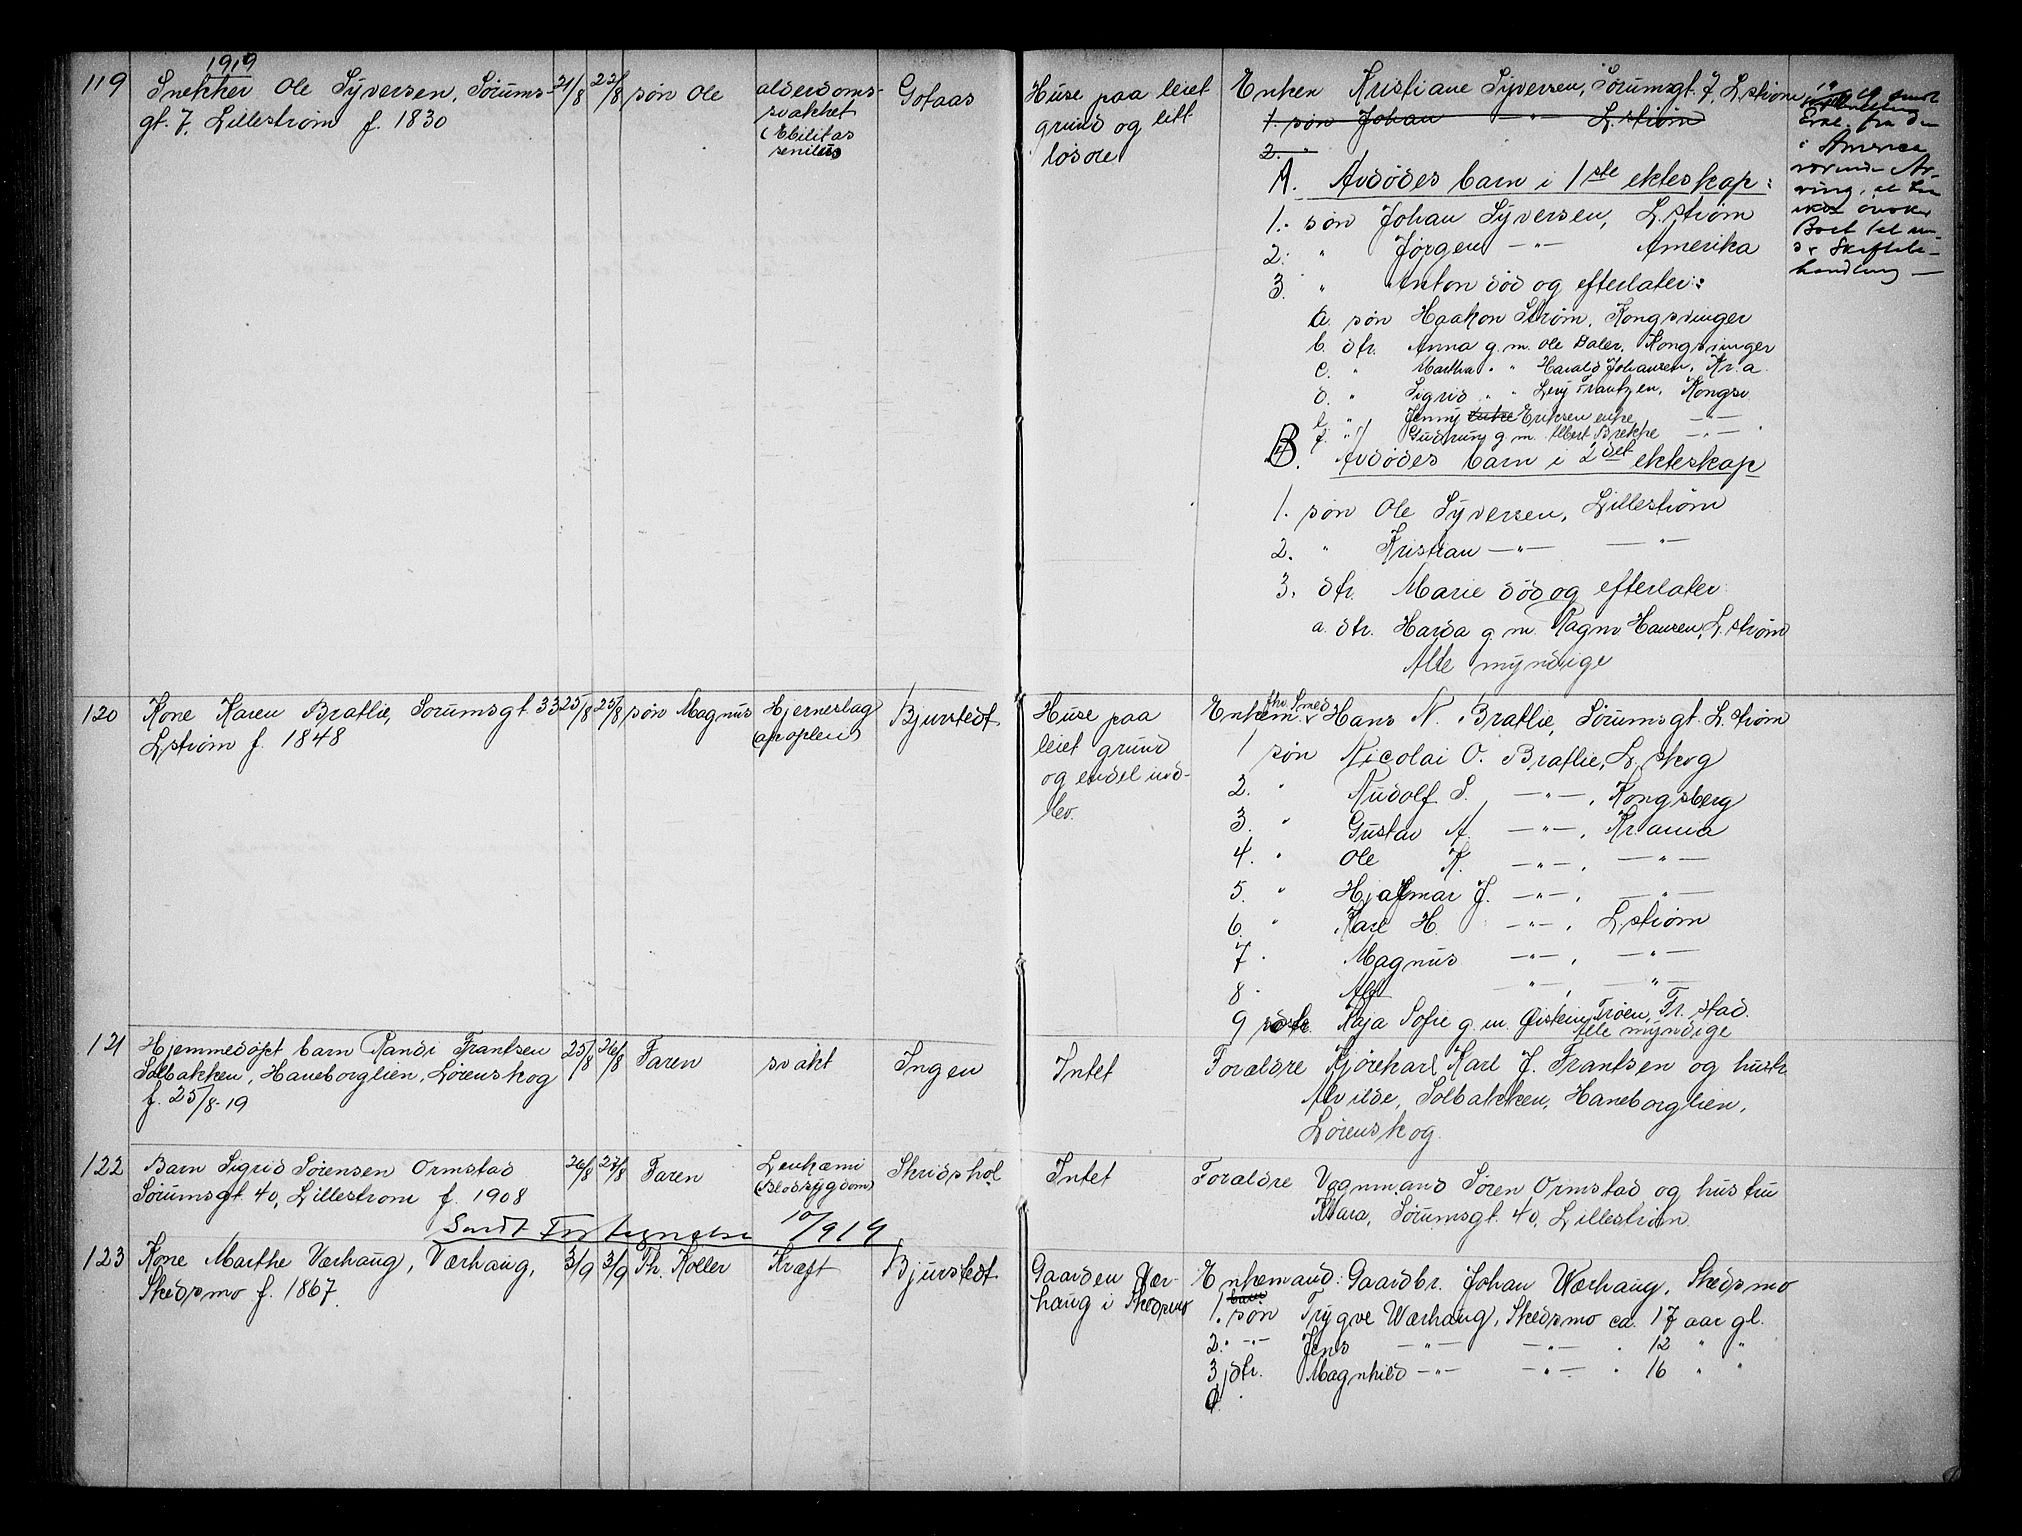 1919
119 Snekker Ole Syversen, Sørums-
gt. 7, Lillestrøm f. 1830
21/8 22/8 søn Ole
alderdoms-
svakhet
(Debilitas
senilis)
Gotaas
Huse paa leiet
grund og litt
løsøre
Enken Kristiane Syversen, Sørumsgt. 7, L.strøm
1. søn Johan —"— L.strøm
2. "
A. Avdødes barn i 1ste ekteskap:
1. søn Johan Syversen, L.strøm
2. " Jørgen —"— Amerika
3. " Anton død og efterlater:
a. søn Haakon Strøm, Kongsvinger
b. dtr. Anna g.m. Ole Daler, Kongsvinger
c. " Martha " " Harald Johansen, Kr.a
d. " Sigrid " " Levy Frantzen, Kongsv
e. " Jenny enke Eriksen enke —"—
f. " Gudrun g.m. Albert Brekke —"—
B. Avdødes barn i 2det ekteskap
1. søn Ole Syversen, Lillestrøm
2. " Kristian —"— —"—
3. dtr. Marie død og efterlater:
a. dtr. Harda g.m. Ragnv. Hansen, L.strøm
Alle myndige
Erkl. fra den
i America
værende Ar-
ving, at han
ikke ønsker
Boet tat un-
der Skiftebe-
handling —
120 Kone Karen Bratlie, Sørumsgt. 33
L.strøm f. 1848
25/8 25/8 søn Magnus
Hjerneslag
(apoplexi)
Bjurstedt
Huse paa
leiet grund
og endel ind-
bo.
Enkem. fhv. Smed Hans N. Bratlie, Sørumsgt. L.strøm
1 søn Nicolai O. Bratlie, L.skog
2. " Rudolf S. —"—, Kongsberg
3. " Gustav A. —"—, Kr.ania
4. " Ole K. —"—, —"—
5. " Hjalmar J. —"—, —"—
6. " Karl H. —"—, L.strøm
7 " Magnus —"—, —"—
8 " Alf —"—, —"—
9 dtr. Kaja Sofie g.m. Øistein Troen, Fr.stad.
Alle myndige
121 Hjemmedøpt barn Randi Frantsen
Solbakken, Haneborglien, Lørenskog
f. 25/8-19
25/8 26/8 Faren
svakt
Ingen
Intet
Forældre Kjørekarl Karl J. Frantsen og hustr.
Alvilde, Solbakken, Haneborglien,
Lørenskog.
122 Barn Sigrid Sørensen Ormstad
Sørumsgt. 40, Lillestrøm f. 1908
26/8 27/8 Faren
Leukæmi
(Blodsygdom)
Skridshol
Intet
Forældre Vognmand Søren Ormstad og hustru
Klara, Sørumsgt. 40, Lillestrøm.
Sendt Fortegnelse 10/9 19
123 Kone Marthe Værhaug, Værhaug,
Skedsmo f. 1867.
3/9 3/9 Th. Koller
Kræft
Bjurstedt
Gaarden Vær-
haug i Skedsmo
Enkemand: Gaardbr. Johan Værhaug, Skedsmo
barn
1. søn Trygve Værhaug, Skedsmo ca. 17 aar gl.
2. —"— Jens —"— —"— " 12 " "
3. dtr. Magnhild —"— —"— " 16 " "